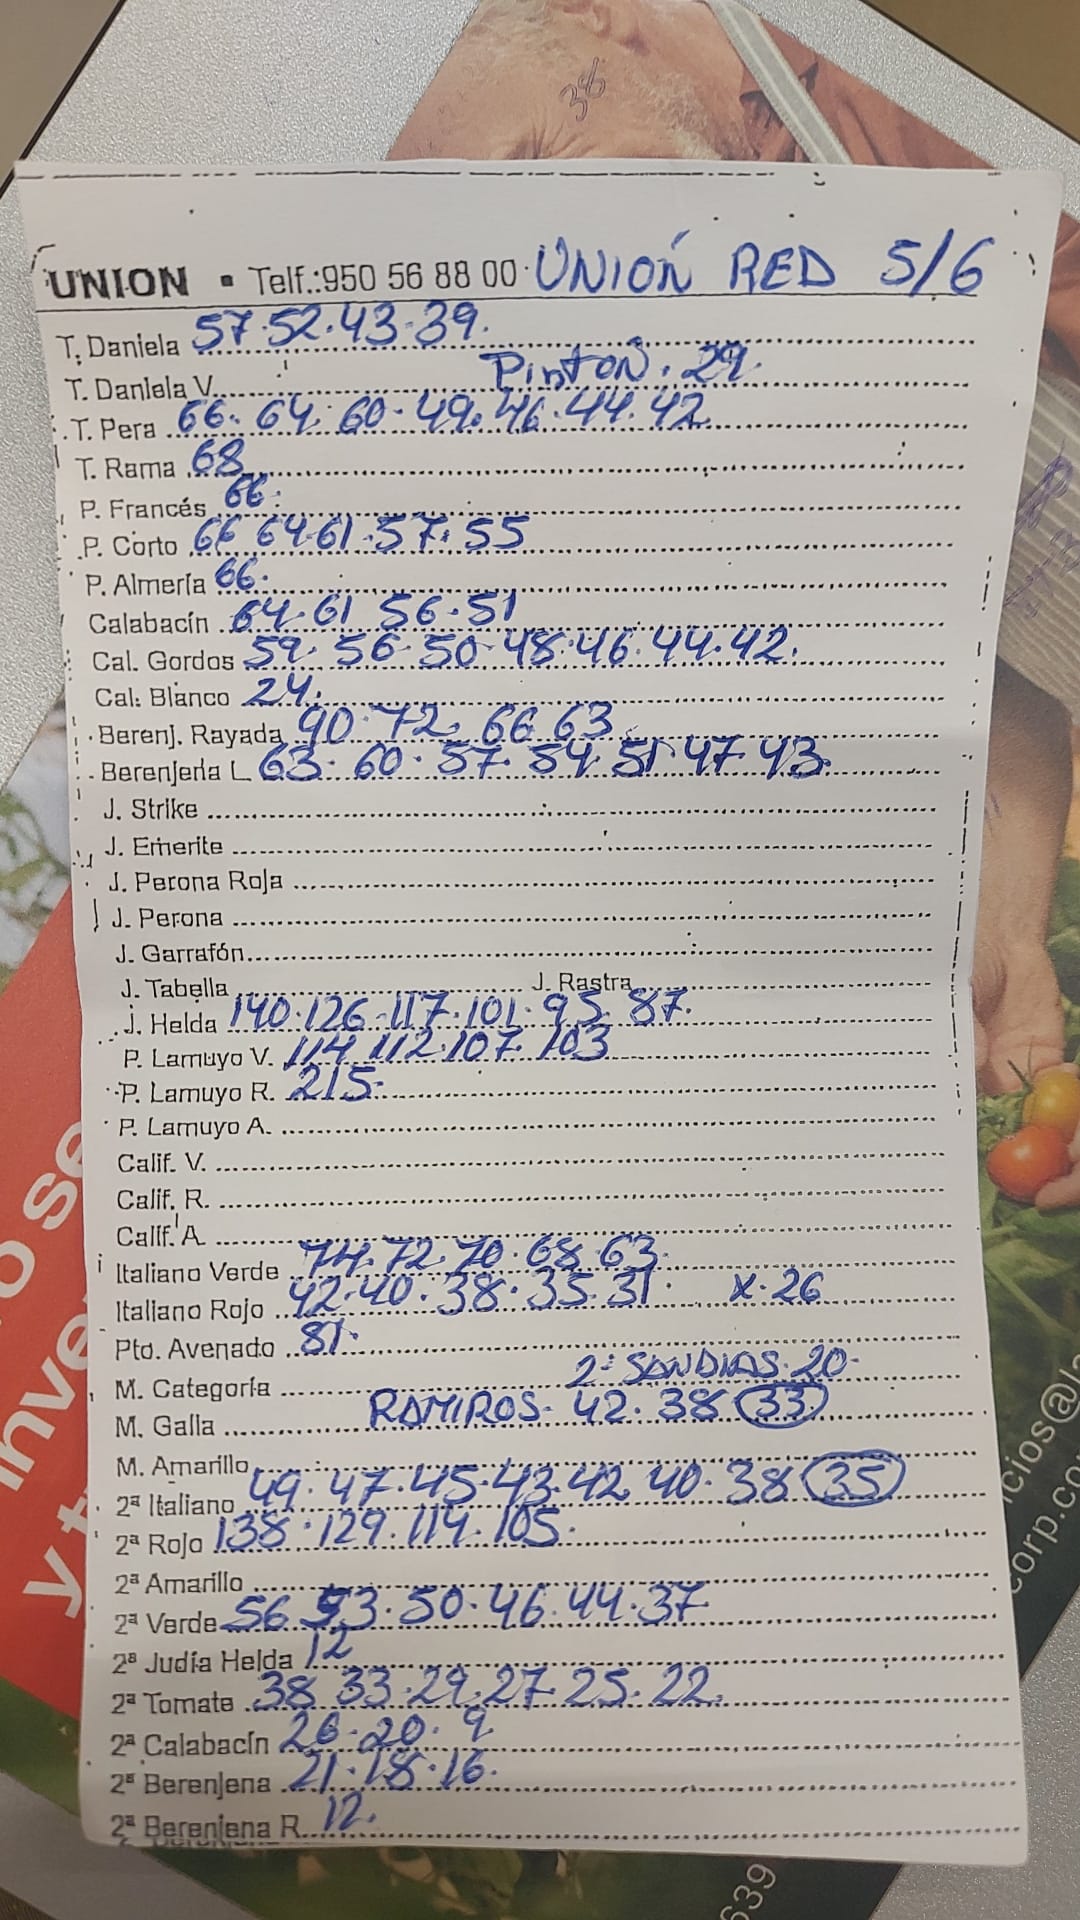 38
UNION ▪ Telf.:950 56 88 00 UNIÓN RED 5/6
T. Daniela 57.52.43.39.
T. Daniela V. PintoN. 29.
T. Pera 66. 64. 60. 49. 46. 44. 42
T. Rama 68
P. Francés 66.
P. Corto 66 64.61.57.55
P. Almería 66.
Calabacín 64.61 56.51
Cal. Gordos 59. 56. 50. 48.46.44.42.
Cal. Blanco 24.
Berenj. Rayada 90.72. 66 63
Berenjena L 63. 60. 57. 54. 51 47 43.
J. Strike
J. Emerite
J. Perona Roja
J. Perona
J. Garrafón
J. Tabella J. Rastra
J. Helda 140.126.117.101.95. 87.
P. Lamuyo V. 114 112.107. 103
P. Lamuyo R. 215.
P. Lamuyo A.
Calif. V.
Calif. R.
Calif. A.
Italiano Verde 74.72.70.68.63.
Italiano Rojo 42.40.38.35.31. X.26
Pto. Avenado 81.
M. Categoría 2ª SANDIAS.20.
M. Galla RAMIROS. 42. 38 33
M. Amarillo
2ª Italiano 49. 47.45.43.42 40. 38 35
2ª Rojo 138.129.114.105.
2ª Amarillo
2ª Verde 56 53.50.46.44.37
2ª Judía Helda 12
2ª Tomate 38 33.29.27 25.22.
2ª Calabacín 26.20. 9
2ª Berenjena 21.18.16.
2ª Berenjena R. 12.
o se
inve
y t
cios@la
orp.co
639